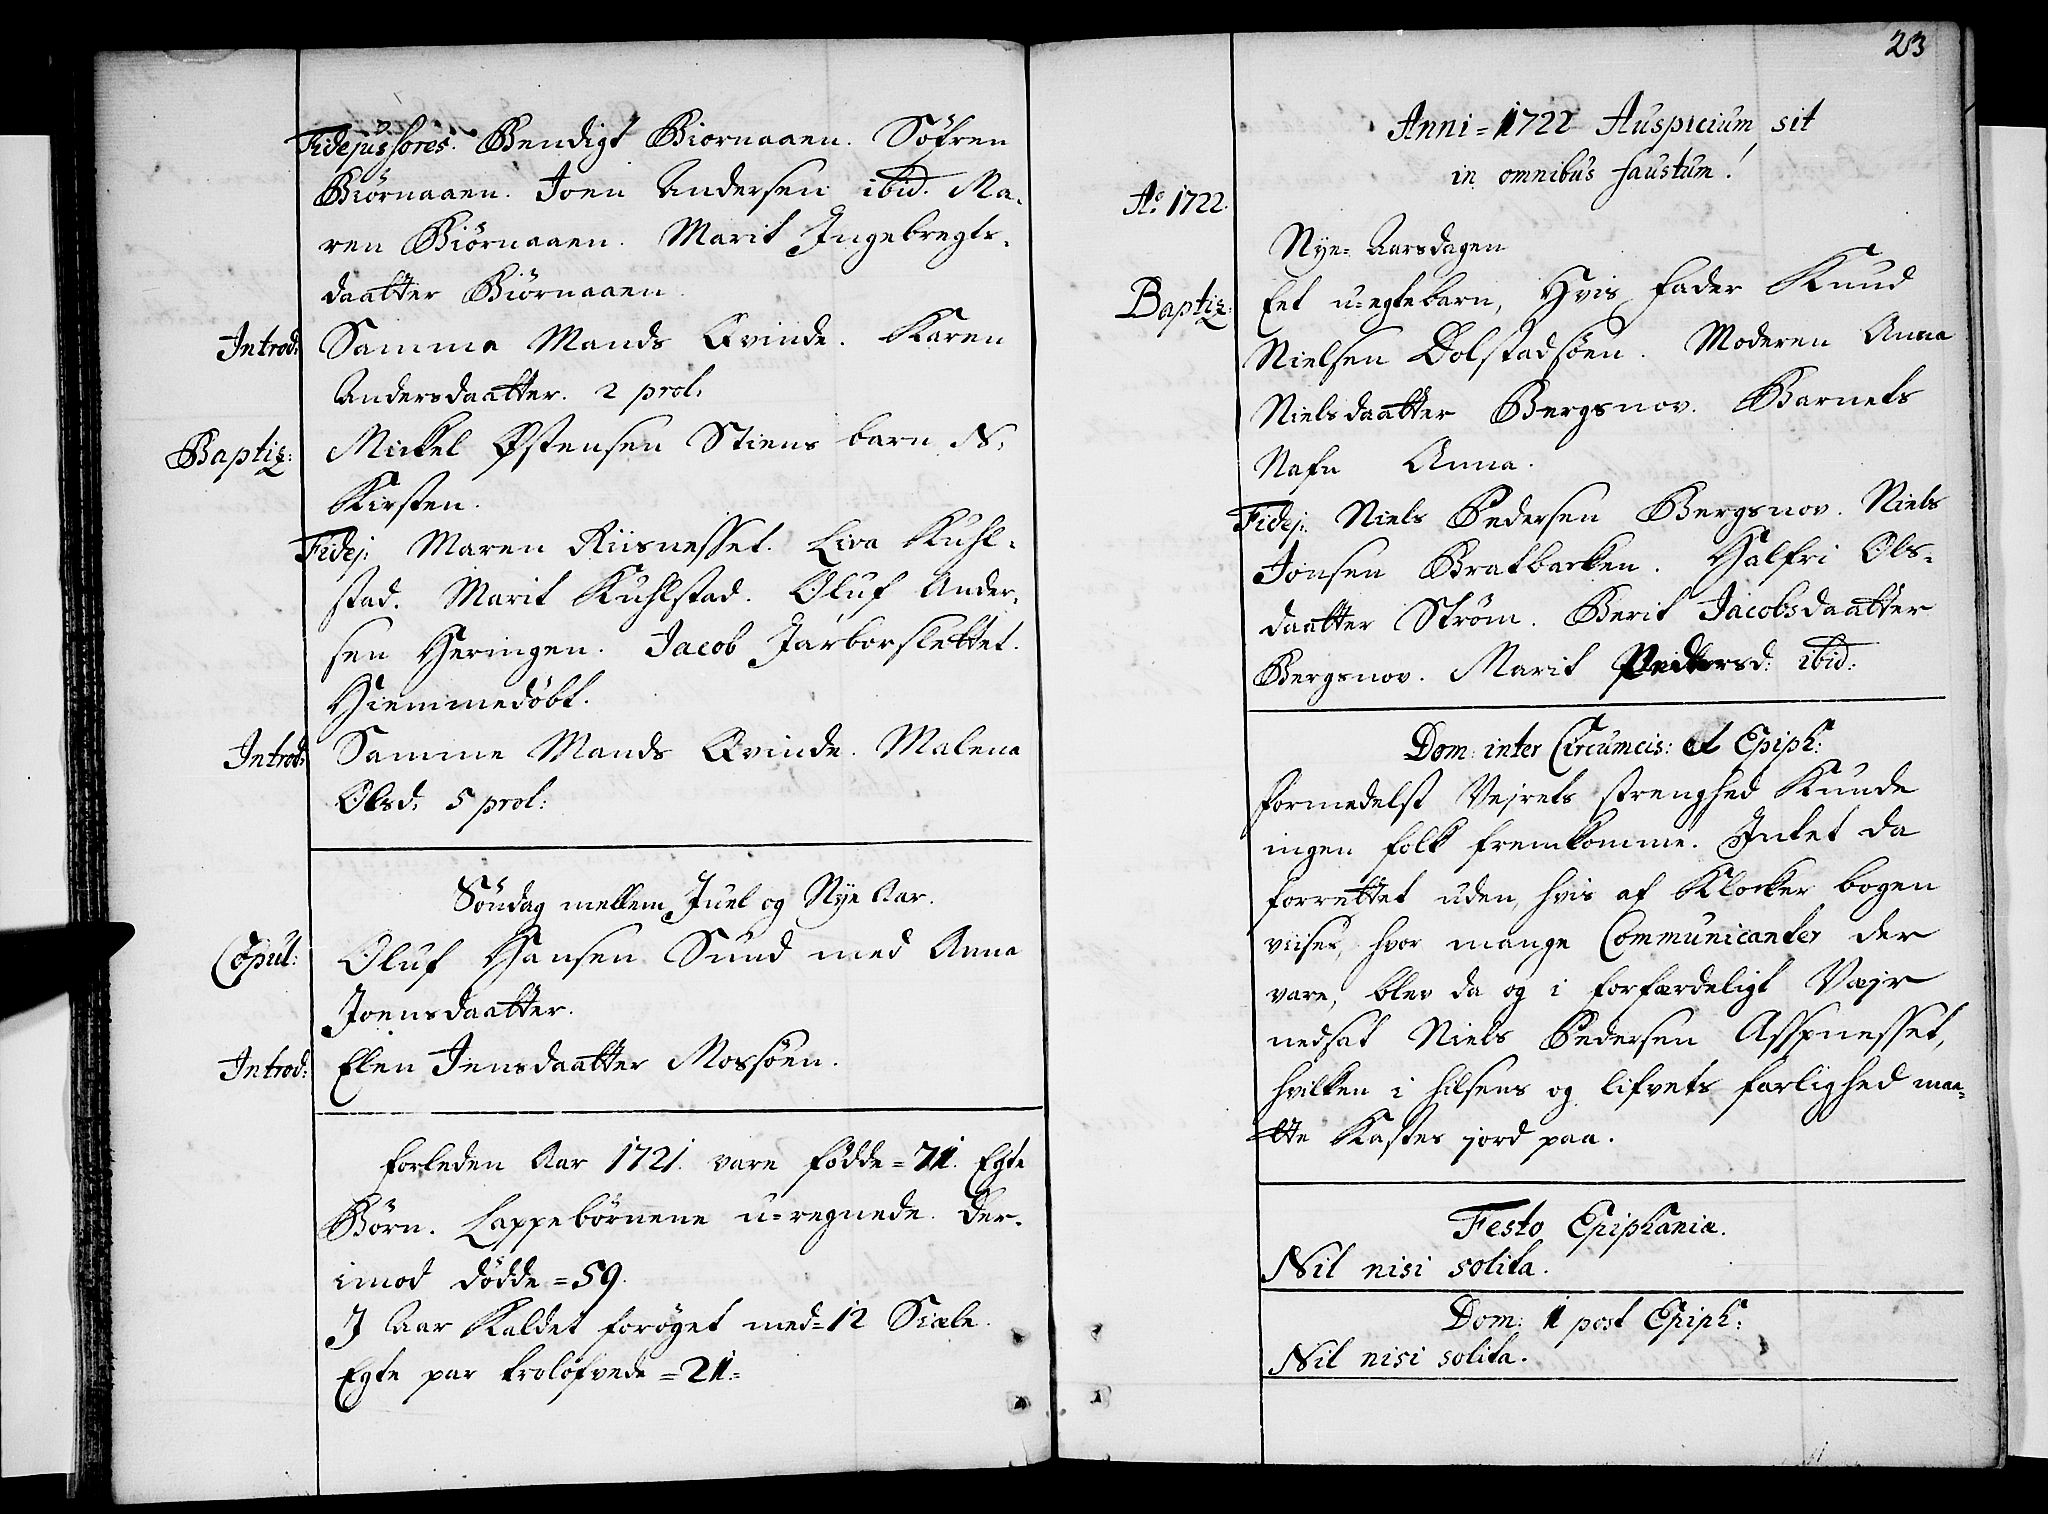 Fidejussores. Bendigt Biornaaen. Söfren
Biörnaaen. Joen Andersen ibid. Ma-
ren Biörnaaen. Marit Ingebregts-
daatter Biörnaaen.
Introd: Samma Mands Qvinde. Karen
Andersdaatter. 2 prol:
Baptiz: Mickel Østensen Stiens barn N.
Kirsten.
Fidej: Maren Riisnesset. Liva Kuhl-
stad. Marit Kuhlstad. Oluf Ander-
sen Heringen. Jacob Jarborslettet.
Hiemmedöbt.
Introd: Samme Mands Qvinde. Malena
Olsd: 5 prol:
Söndag mellem Juel og Nye Aar.
Copul: Oluf Hansen Sund med Anna
Joensdaatter.
Introd: Elen Jensdaatter Mossöen.
Forleden Aar 1721. vare födde = 71. Egte
Börn. Lappebörnene u-regnede. Der-
imod dödde = 59.
I Aar Kaldet foröget med = 12 Siæle.
Egte par trolofvede = 21 =
23
Anni = 1722 Auspicium sit
in omnibus faustum!
Ao 1722.
Nye-Aarsdagen
Baptiz: Eet u-egtebarn, Hvis Fader Knud
Nielsen Dolstadsöen. Moderen Anna
Nielsdaatter Bergsnov. Barnets
Nafn Anna.
Fidej: Niels Pedersen Bergsnov. Niels
Jonsen Bratbacken. Halfri Ols-
daatter Ström. Berit Jacobsdaatter
Bergsnov. Marit Pedersd: ibid:
Dom: inter Circumcis: et Epiph:
Formedelst Vejrets strenghed Kunde
ingen folk fremkomme. Intet da
forrettet uden, hvis af Klocker bogen
viises, hvor mange Communicanter der
vare, blev da og i forfærdeligt Vejr
nedsat Niels Pedersen Asspnesset,
hvilken i hilsens og lifvets farlighed maa-
tte Kastes jord paa.
Festo Epiphania.
Nil nisi solita.
Dom: 1 post Epiph:
Nil nisi solita.